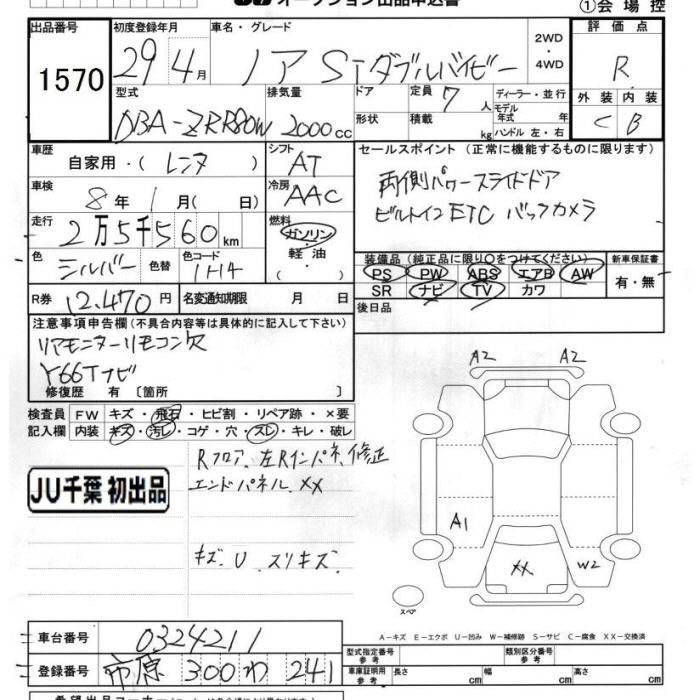 オークション出品申込書
①会場控
出品番号 初度登録年月 車名・グレード 2WD・4WD 評価点
1570 29年4月 ノア Siダブルバイビー R
型式 排気量 ドア 定員 7人 ディーラー・並行 外装 内装
DBA-ZRR80W 2000cc 形状 積載 kg モデル年式 年 ハンドル 左・右 C B
車歴 自家用・(レンタ) シフト AT
セールスポイント (正常に機能するものに限ります)
車検 8年1月(日) 冷房 AAC
両側パワースライドドア
ビルトインETC バックカメラ
走行 2万5千560km 燃料 ガソリン・軽油・
色 シルバー 色替 色コード 1H14
装備品 (純正品に限り○をつけてください) 新車保証書
PS PW ABS エアB AW 有・無
SR ナビ TV カワ
R券 12,470円 名変通知期限 月 日
後日品
注意事項申告欄(不具合内容等は具体的に記入して下さい)
リアモニターリモコン欠
Y66Tナビ
修復歴 有〔箇所 〕
検査員 FW キズ・飛石・ヒビ割・リペア跡・×要
記入欄 内装 キズ・汚レ・コゲ・穴・スレ・キレ・破レ
Rフロア、左Rインパネ、修正
エンドパネル、XX
JU千葉 初出品
キズ、U スリキズ
A2 A2
A1
XX W2
スペア
A－キズ E－エクボ U－凹み W－補修跡 S－サビ C－腐食 XX－交換済
車台番号 0324211
型式指定番号 参考 類別区分番号 参考
登録番号 市原 300 わ 241
車庫証明用 参考 長さ cm 幅 cm 高さ cm